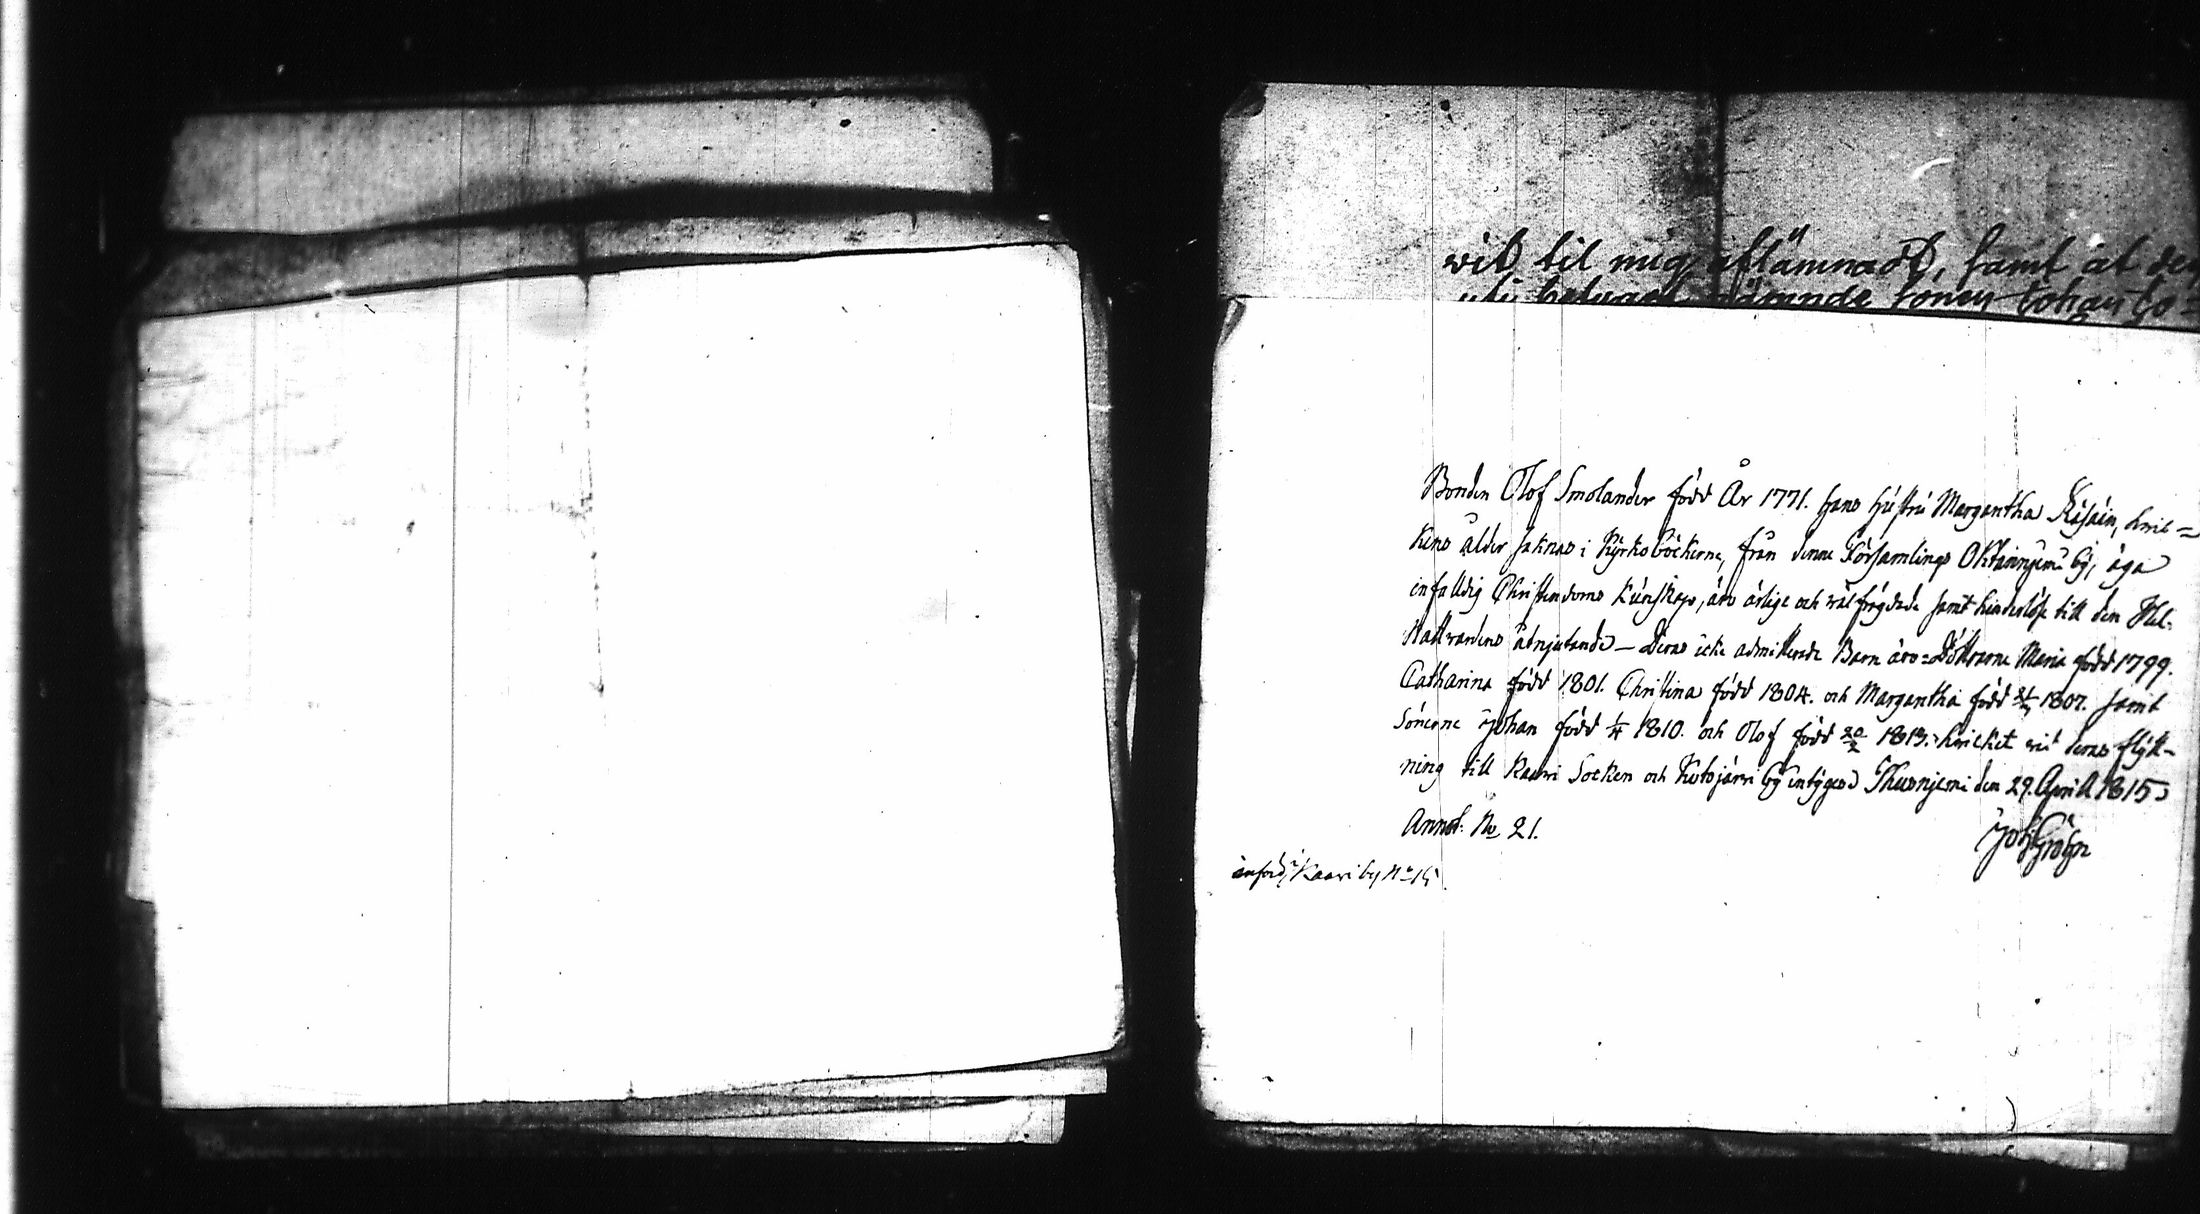 vid til mig aflämnadt, samt at den
nämnde sonen Johan
Bonden Olof Smolander född År 1771. hans hustru Margaretha hvil=
kens ålder saknas i Kyrkoböckerne, från denne Församlings by, äga
enfalldig Christendoms kunskap, äro ärlige och välfrägdade samt hinderlöse till den Hel.
Nattvardens åtnjutande — Deras icke admitterade Barn äro: Döttrarne Maria född 1799.
Catharina född 1801. Christina född 1804. och Margaretha född 1807. samt
Sönerne Johan född 1/4 1810. och Olof född 20/2 1813. hvilket vid deras flytt-
ning till Kaavi Socken och by intygas Thusnjemi den 29. April 1815
Annot: No 21.
Joh Gröhn
införd, Kaavi by No 15